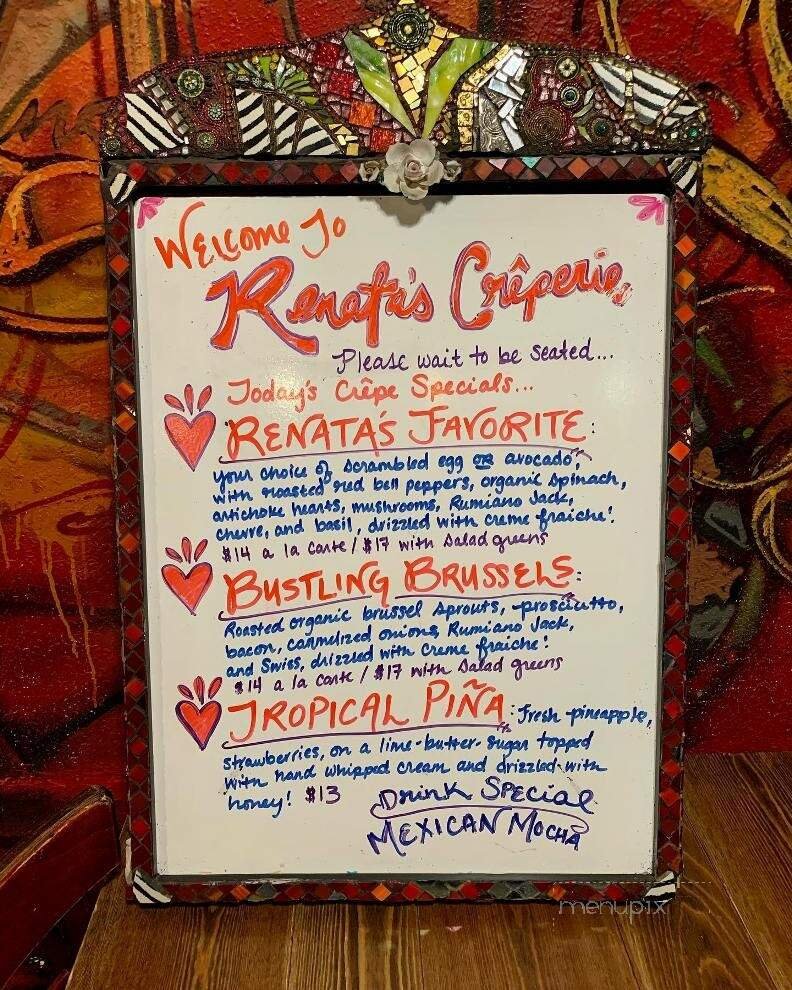 Welcome To
Renata's Crêperie
Please wait to be seated...
Today's Crêpe Specials...
RENATA'S FAVORITE:
your choice of scrambled egg or avocado,
with roasted red bell peppers, organic spinach,
artichoke hearts, mushrooms, Rumiano Jack,
chevre, and basil, drizzled with creme fraiche!
$14 a la carte / $17 with salad greens
BUSTLING BRUSSELS:
Roasted organic brussel sprouts, prosciutto,
bacon, carmelized onions, Rumiano Jack,
and Swiss, drizzled with creme fraiche!
$14 a la carte / $17 with salad greens
TROPICAL PIÑA: fresh pineapple,
strawberries, on a lime-butter-sugar topped
with hand whipped cream and drizzled with
honey! $13
Drink Special
MEXICAN MOCHA
menupix